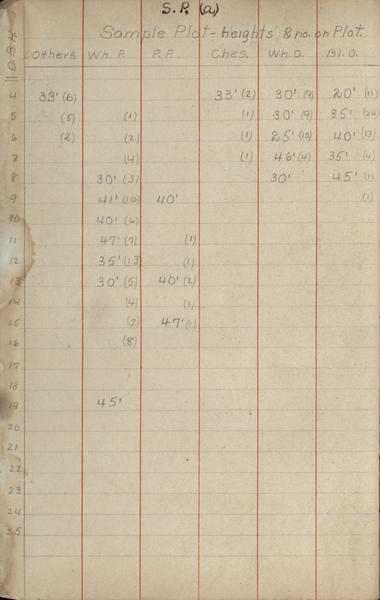 S.P. (a)
Sample Plot - heights & no. on Plot.
D.B.H. Others Wh. P. P.P. Ches. Wh. O. Bl. O.
4 33' (6) 33' (2) 30' (9) 20' (11)
5 (5) (1) (1) 30' (9) 35' (24)
6 (2) (2) (1) 25' (10) 40' (13)
7 (4) (1) 46' (4) 35' (4)
8 30' (3) 30' 45' (1)
9 41' (10) 40' (1)
10 40' (6)
11 47' (7) (1)
12 35' (13) (1)
13 30' (5) 40' (2)
14 (4) (1)
15 (2) 47' (1)
16 (8)
17
18
19 45'
20
21
22
23
24
25